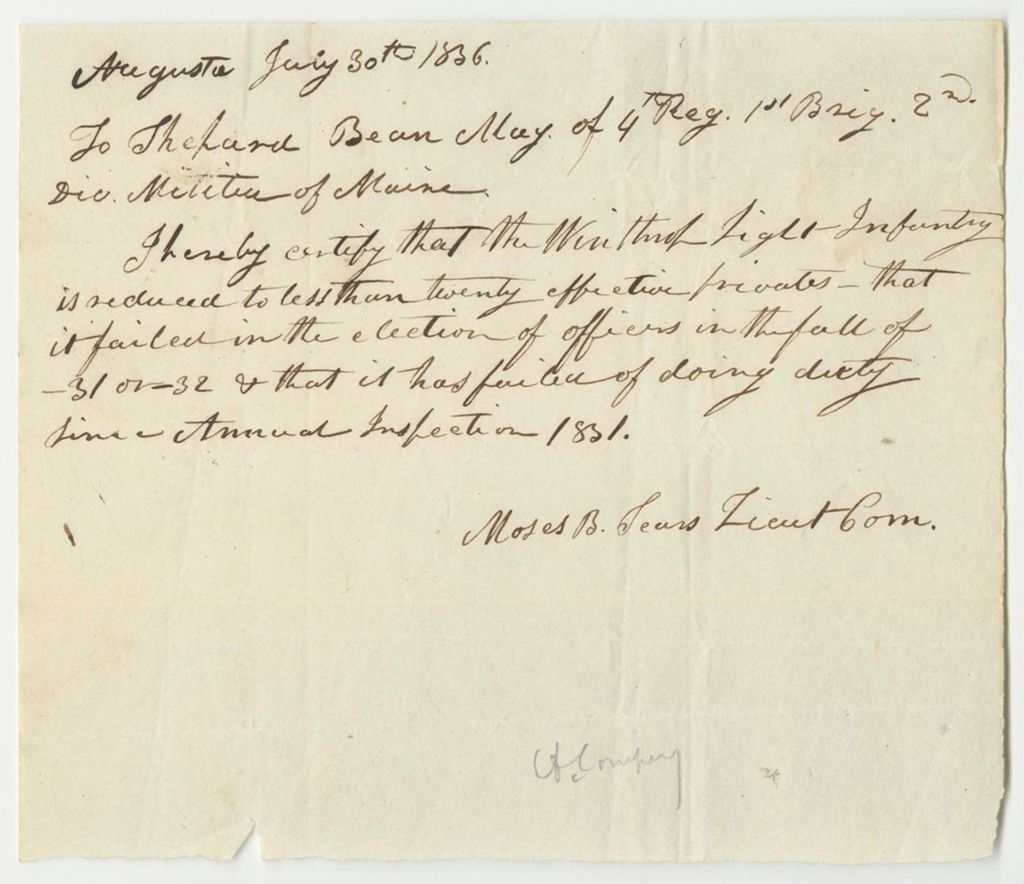 Augusta July 30th 1836.
To Shepard Bean Maj. of 4th Reg. 1st Brig. 2nd.
Div. Militia of Maine.
I hereby certify that the Winthrop Light Infantry
is reduced to less than twenty effective privates - that
it failed in the election of officers in the fall of
-31 or -32 & that it has failed of doing duty
since Annual Inspection 1831.
Moses B. Sears Lieut Com.
A Company